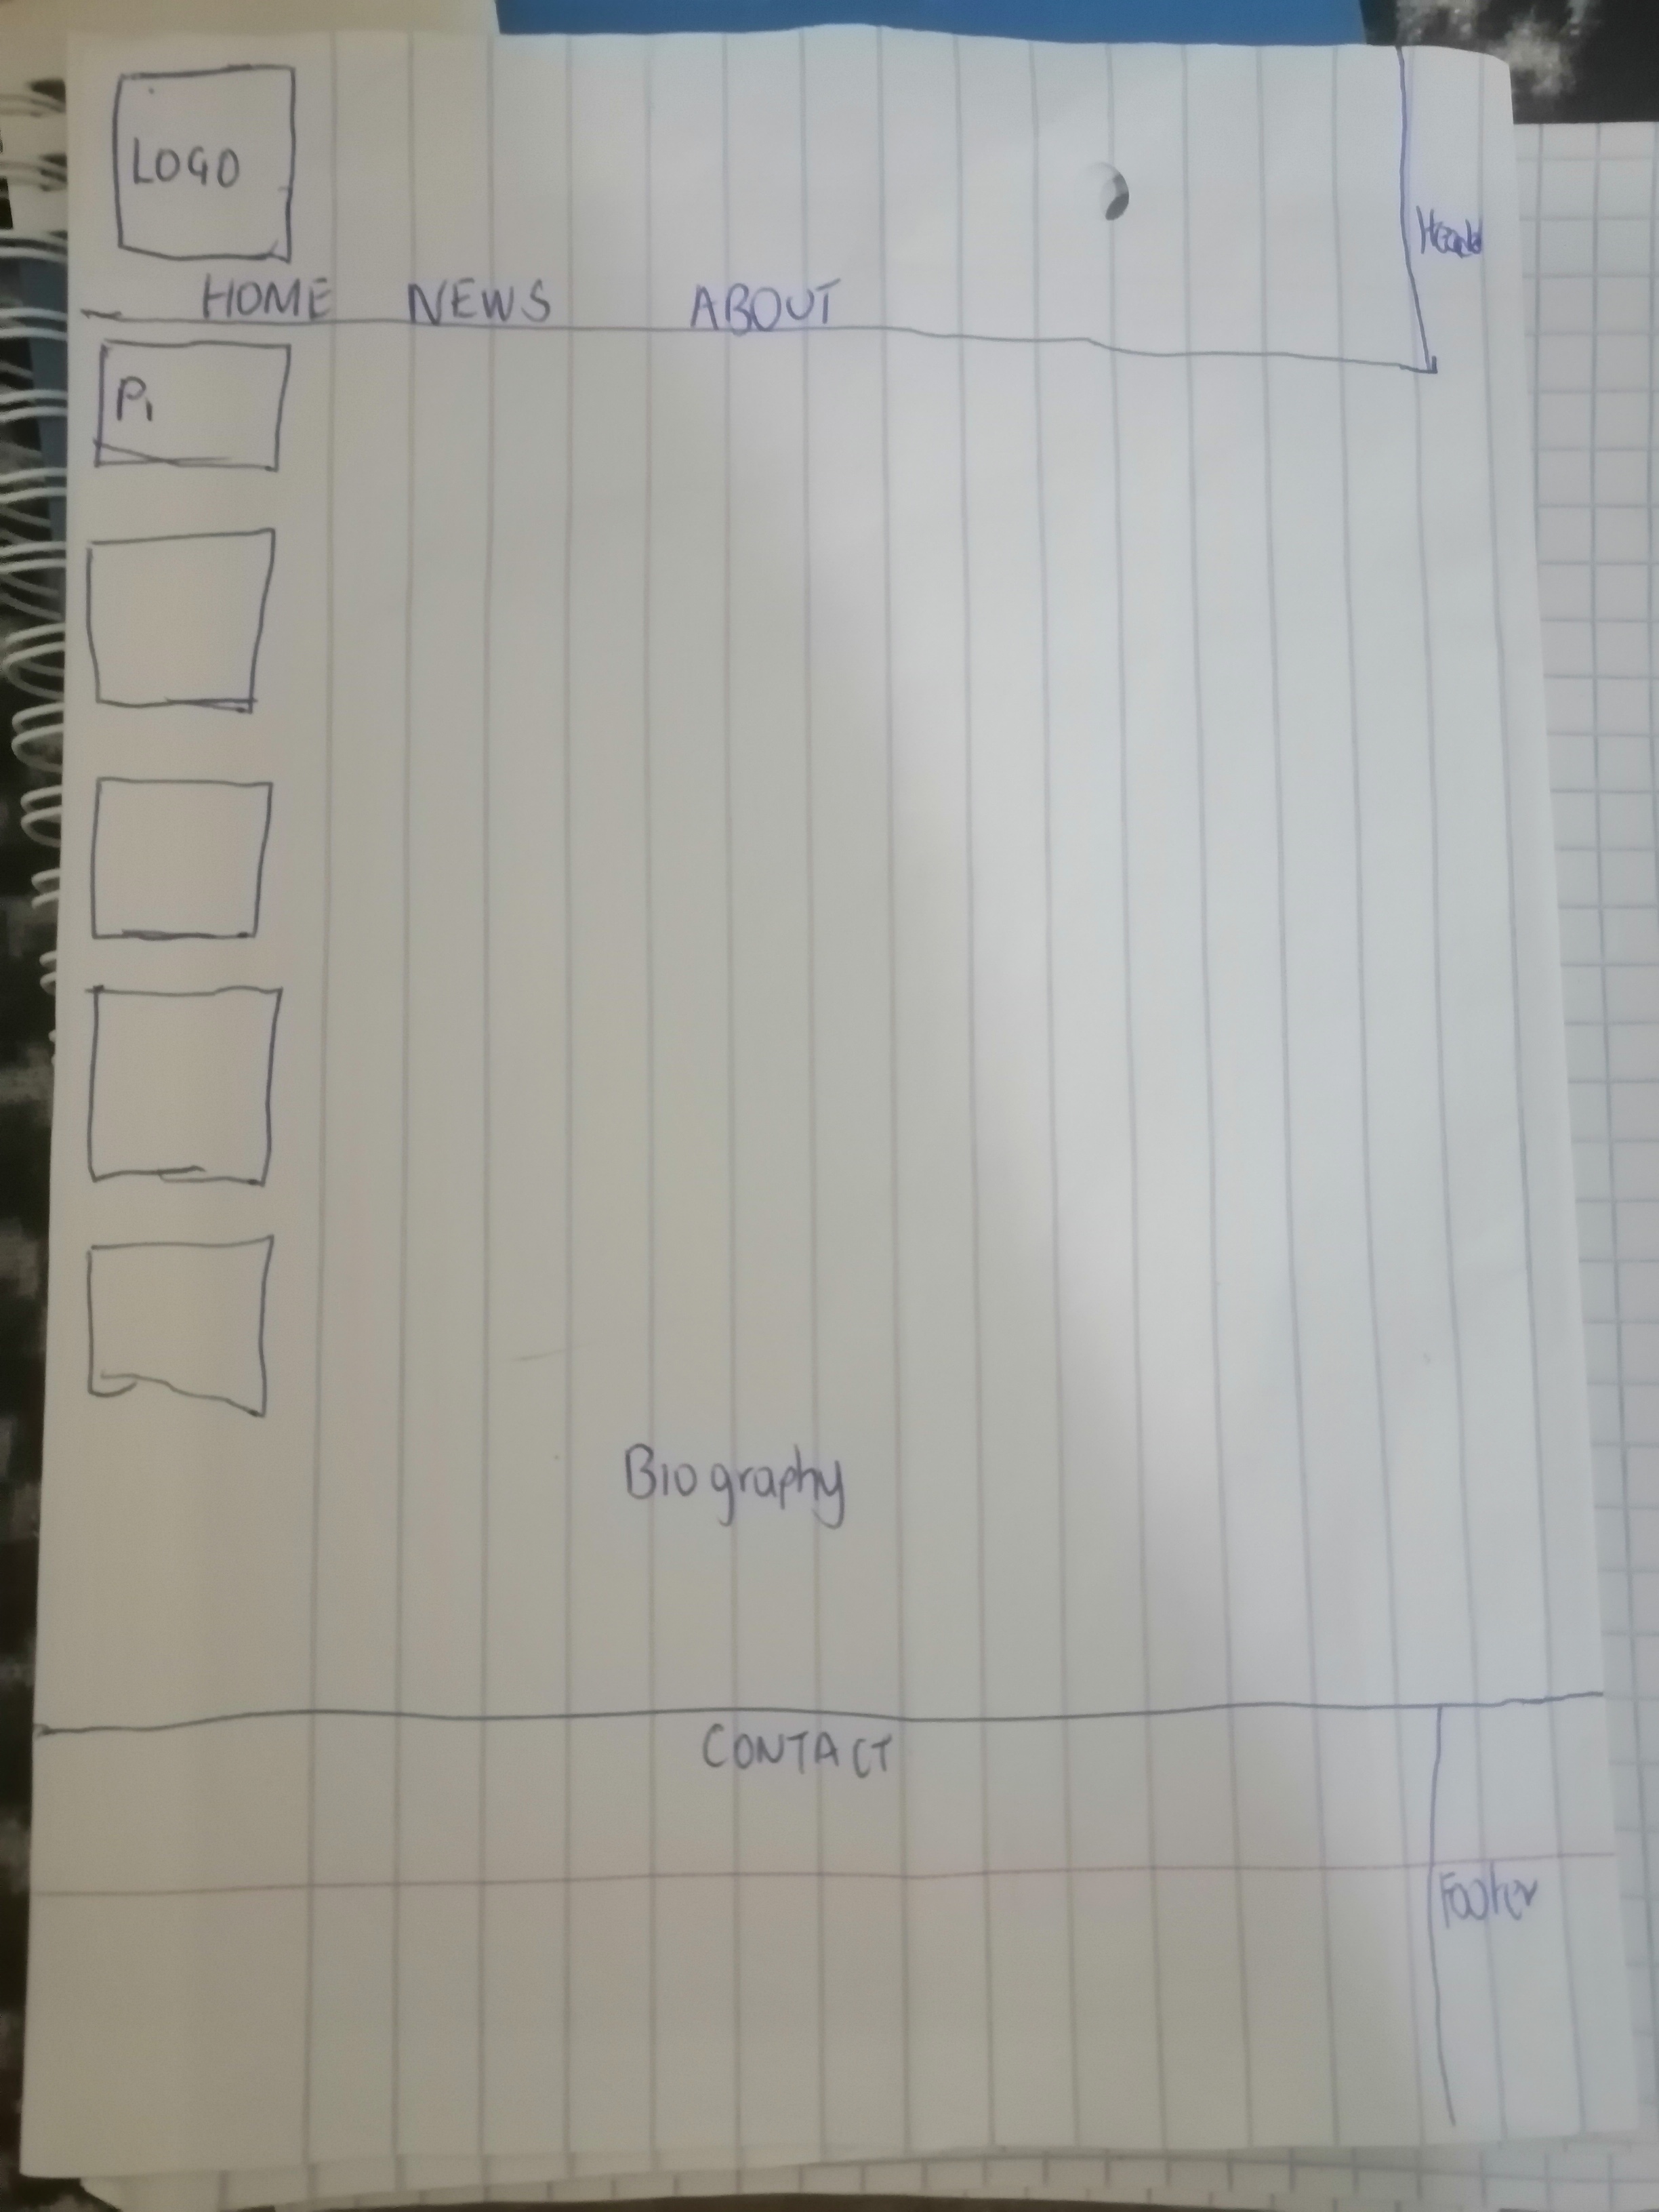 LOGO
HOME NEWS ABOUT
P1
Biography
CONTACT
Footer